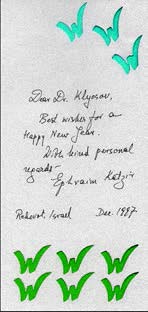 Dear Dr. Klyosov,
Best wishes for a
Happy New Year.
With kind personal
regards -
Ephraim Katzir
Rehovot, Israel Dec. 1987